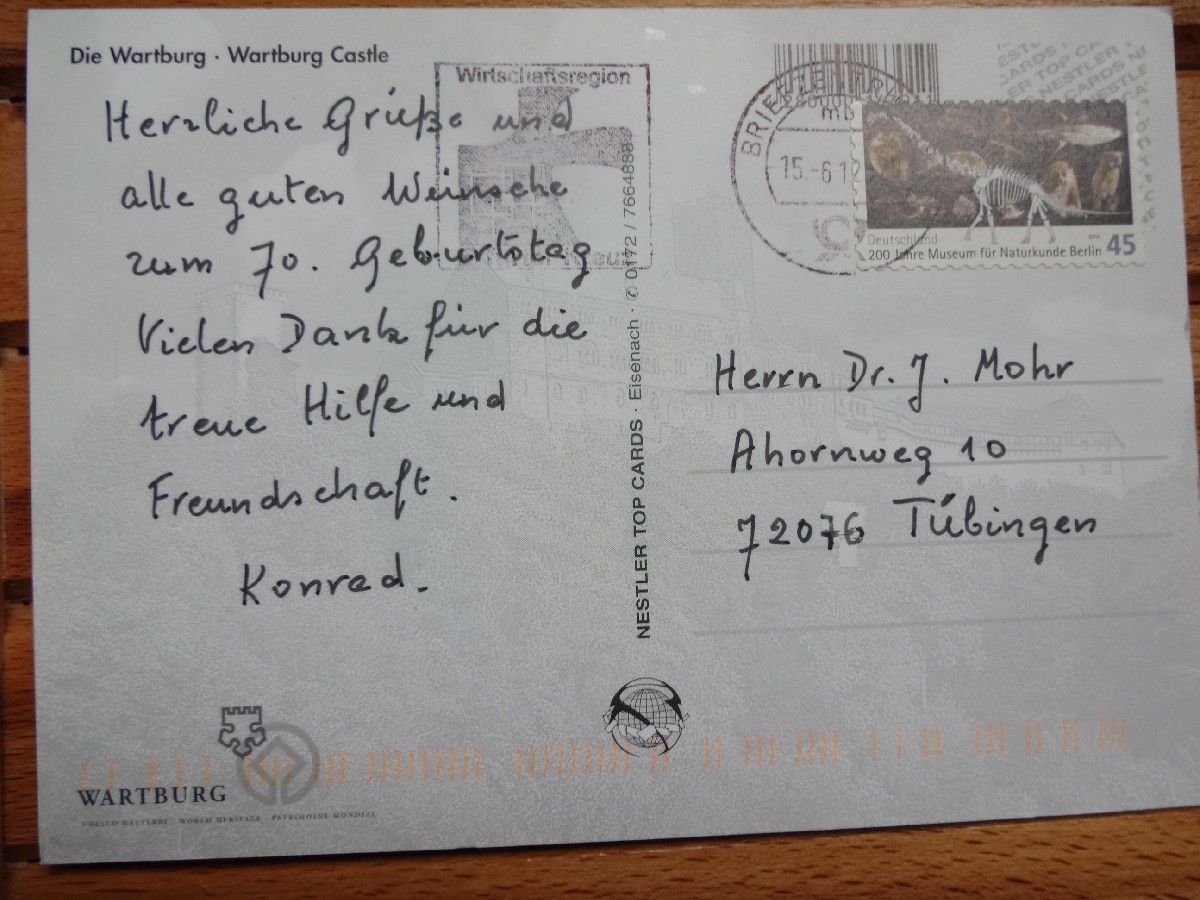 Die Wartburg · Wartburg Castle
Wirtschaftsregion
Herzliche Grüße und
alle guten Wünsche
zum 70. Geburtstag
Vielen Dank für die
treue Hilfe und
Freundschaft.
Konrad.
NESTLER TOP CARDS · Eisenach · ✆ 0172 / 7664888
BRIEFZENTRUM
mb
15.-6.12
Deutschland
200 Jahre Museum für Naturkunde Berlin 45
Herrn Dr. J. Mohr
Ahornweg 10
72076 Tübingen
WARTBURG
UNESCO WELTERBE · WORLD HERITAGE · PATRIMOINE MONDIAL